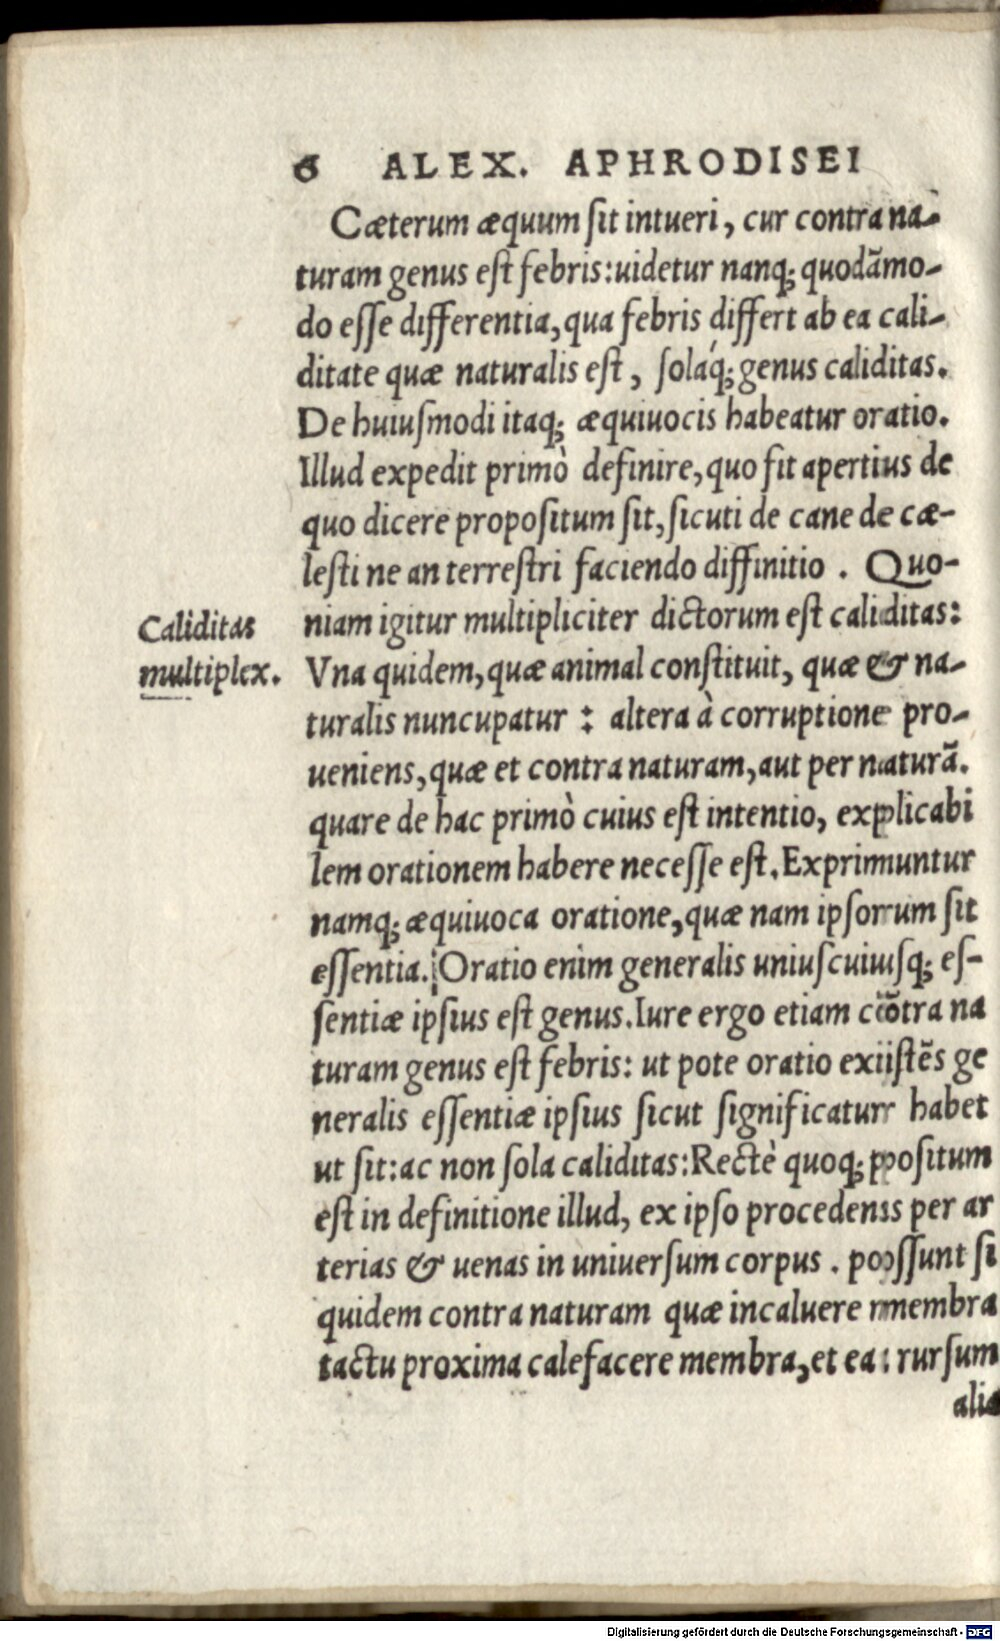 6 ALEX. APHRODISEI
Cæterum æquum sit intueri, cur contra na-
turam genus est febris:uidetur nanq; quodāmo-
do esse differentia,qua febris differt ab ea cali-
ditate quæ naturalis est, solaq́; genus caliditas.
De huiusmodi itaq; æquiuocis habeatur oratio.
Illud expedit primò definire,quo fit apertius de
quo dicere propositum sit,sicuti de cane de cæ-
lesti ne an terrestri faciendo diffinitio . Quo-
Caliditas
multiplex.
niam igitur multipliciter dictorum est caliditas:
Vna quidem,quæ animal constituit, quæ & na-
turalis nuncupatur : altera à corruptione pro-
ueniens,quæ et contra naturam,aut per naturā.
quare de hac primò cuius est intentio, explicabi
lem orationem habere necesse est.Exprimuntur
namq; æquiuoca oratione,quæ nam ipsorum sit
essentia. Oratio enim generalis uniuscuiusq; es-
sentiæ ipsius est genus.Iure ergo etiam cōtra na
turam genus est febris: ut pote oratio existēs ge
neralis essentiæ ipsius sicut significatur habet
ut sit:ac non sola caliditas:Rectè quoq; ꝓpositum
est in definitione illud, ex ipso procedens per ar
terias & uenas in uniuersum corpus . possunt si
quidem contra naturam quæ incaluere membra
tactu proxima calefacere membra,et ea: rursum
alia
Digitalisierung gefördert durch die Deutsche Forschungsgemeinschaft - DFG